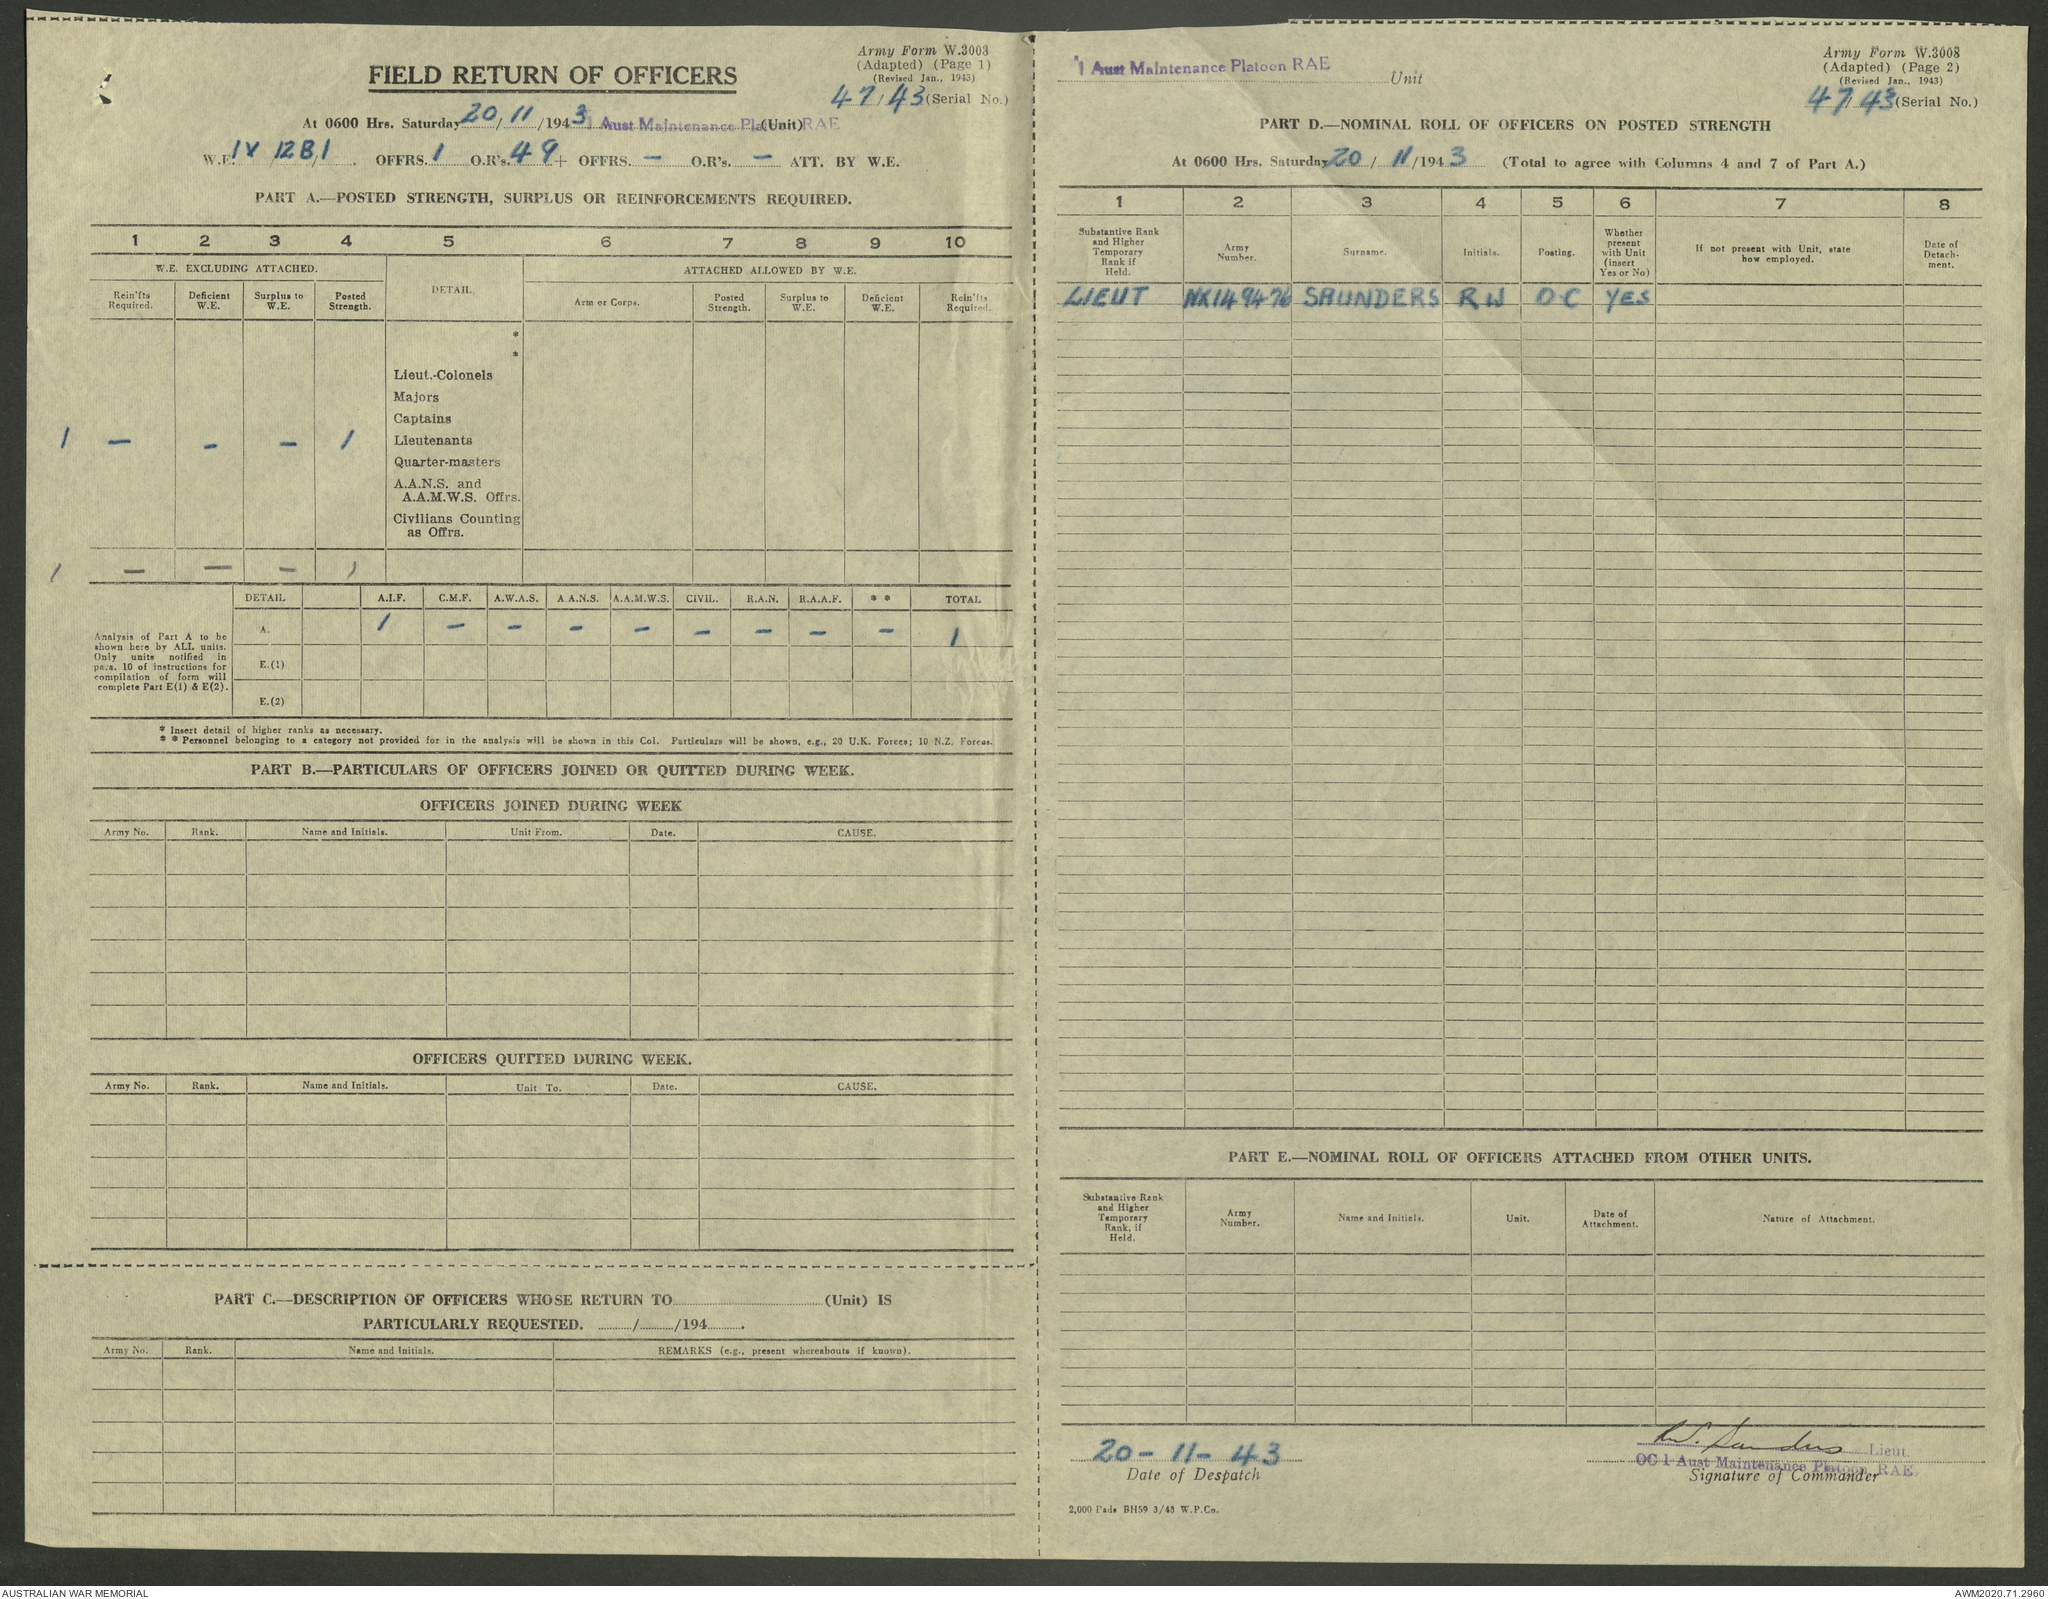 Army Form W.3008
(Adapted) (Page 1)
(Revised Jan., 1943)
47/43 (Serial No.)
FIELD RETURN OF OFFICERS
At 0600 Hrs. Saturday 20/11/1943 1 Aust Maintenance Platoon RAE (Unit)
W.E. IV /12B/1. OFFRS. 1 O.R's. 49 + OFFRS. — O.R's. — ATT. BY W.E.
PART A.—POSTED STRENGTH, SURPLUS OR REINFORCEMENTS REQUIRED.
1 2 3 4 5 6 7 8 9 10
W.E. EXCLUDING ATTACHED. DETAIL. ATTACHED ALLOWED BY W.E.
Rein'fts Required. Deficient W.E. Surplus to W.E. Posted Strength. Arm or Corps. Posted Strength. Surplus to W.E. Deficient W.E. Rein'fts Required.
*
*
Lieut.-Colonels
Majors
Captains
1 — — — 1 Lieutenants
Quarter-masters
A.A.N.S. and
A.A.M.W.S. Offrs.
Civilians Counting
as Offrs.
1 — — — 1
DETAIL A.I.F. C.M.F. A.W.A.S. A A.N.S. A.A.M.W.S. CIVIL. R.A.N. R.A.A.F. * * TOTAL
A. 1 — — — — — — — — 1
E.(1)
E.(2)
Analysis of Part A to be
shown here by ALL units.
Only units notified in
para. 10 of instructions for
compilation of form will
complete Part E(1) & E(2).
* Insert detail of higher ranks as necessary.
* * Personnel belonging to a category not provided for in the analysis will be shown in this Col. Particulars will be shown, e.g., 20 U.K. Forces; 10 N.Z. Forces.
PART B.—PARTICULARS OF OFFICERS JOINED OR QUITTED DURING WEEK.
OFFICERS JOINED DURING WEEK
Army No. Rank. Name and Initials. Unit From. Date. CAUSE.
OFFICERS QUITTED DURING WEEK.
Army No. Rank. Name and Initials. Unit To. Date. CAUSE.
PART C.—DESCRIPTION OF OFFICERS WHOSE RETURN TO (Unit) IS
PARTICULARLY REQUESTED. / /194 .
Army No. Rank. Name and Initials. REMARKS (e.g., present whereabouts if known).
1 Aust Maintenance Platoon RAE Unit
Army Form W.3008
(Adapted) (Page 2)
(Revised Jan., 1943)
47/43 (Serial No.)
PART D.—NOMINAL ROLL OF OFFICERS ON POSTED STRENGTH
At 0600 Hrs. Saturday 20/11/1943 (Total to agree with Columns 4 and 7 of Part A.)
1 2 3 4 5 6 7 8
Substantive Rank and Higher Temporary Rank if Held. Army Number. Surname. Initials. Posting. Whether present with Unit (insert Yes or No) If not present with Unit, state how employed. Date of Detach- ment.
LIEUT NX149476 SAUNDERS RW OC YES
PART E.—NOMINAL ROLL OF OFFICERS ATTACHED FROM OTHER UNITS.
Substantive Rank and Higher Temporary Rank, if Held. Army Number. Name and Initials. Unit. Date of Attachment. Nature of Attachment.
20-11-43
Date of Despatch
R.W. Saunders Lieut.
OC 1 Aust Maintenance Platoon RAE
Signature of Commander
2,000 Pads BH59 3/43 W.P.Co.
AUSTRALIAN WAR MEMORIAL
AWM2020.71.2960